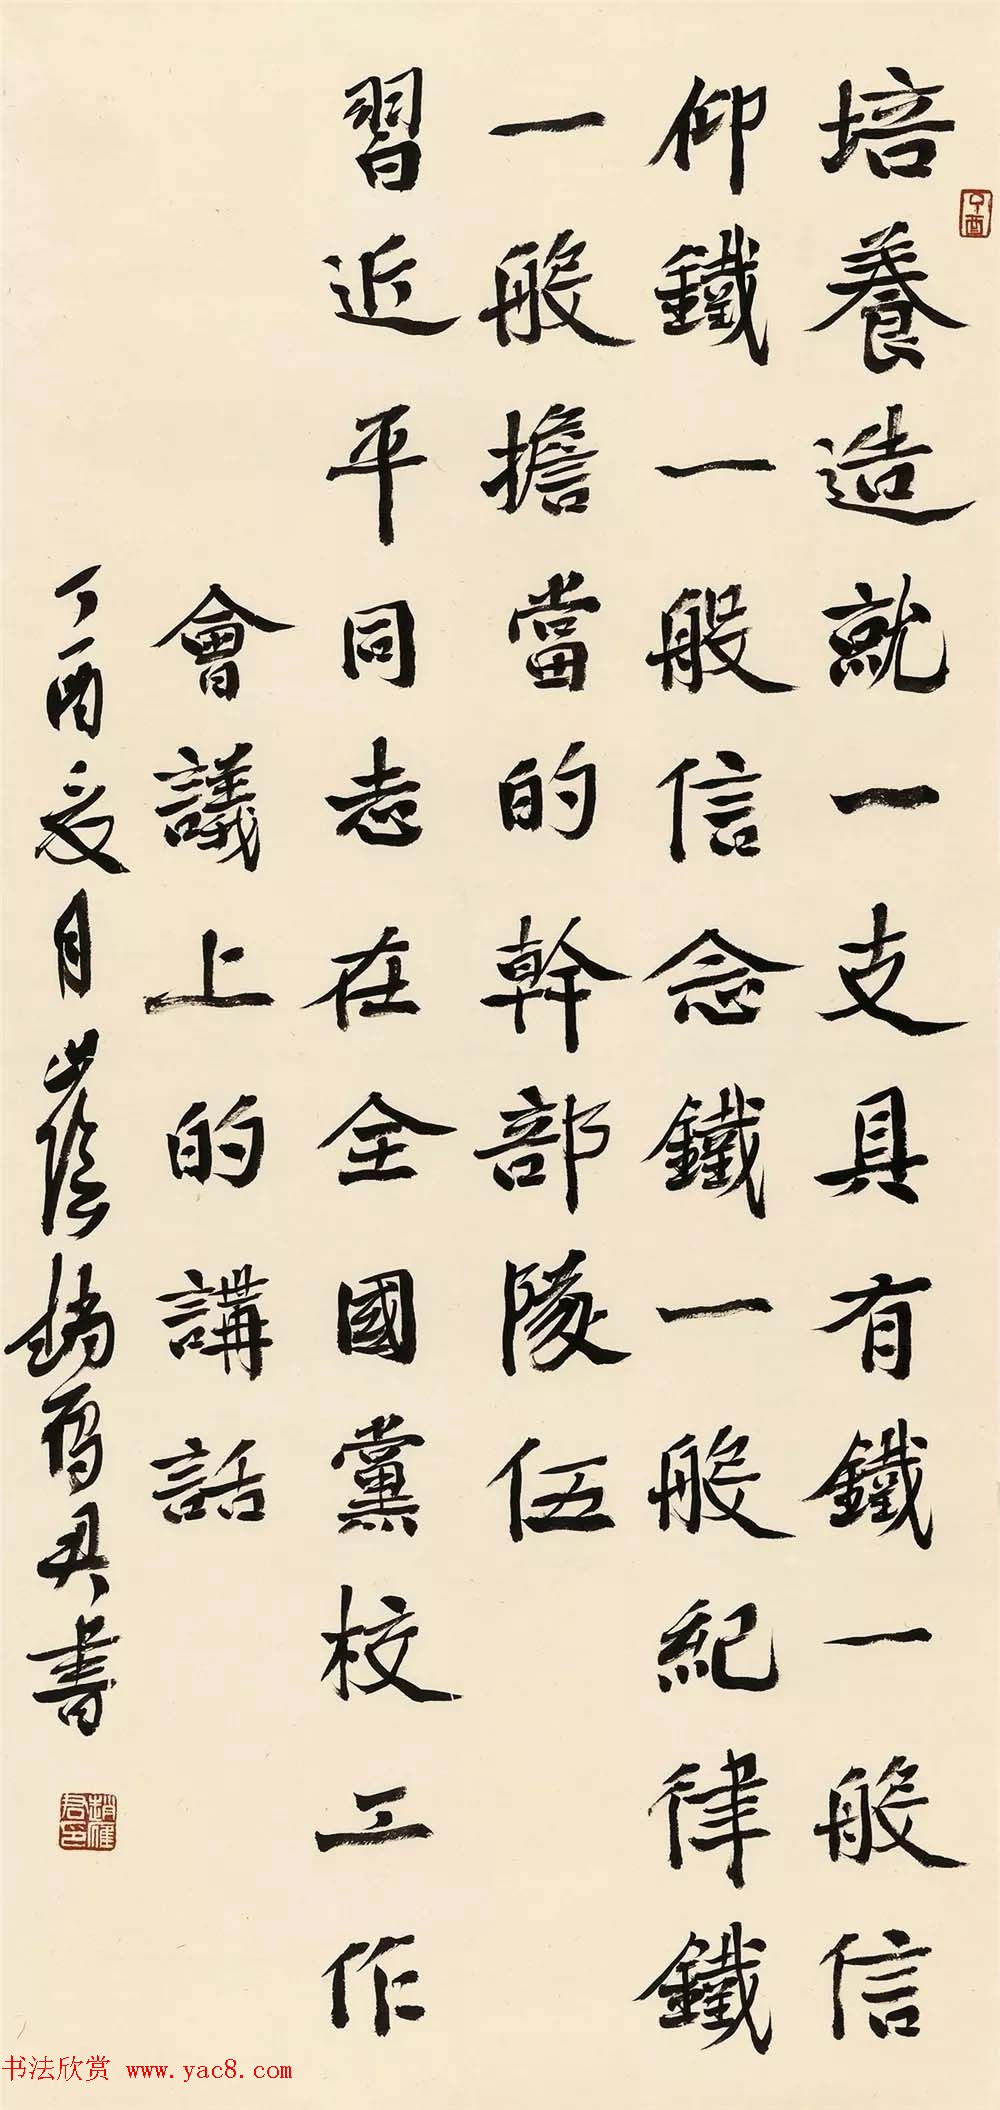 丁酉
培養造就一支具有鐵一般信
仰鐵一般信念鐵一般紀律鐵
一般擔當的幹部隊伍
習近平同志在全國黨校工作
會議上的講話
丁酉夏月山陰趙雁君書
趙雁君印
书法欣赏 www.yac8.com